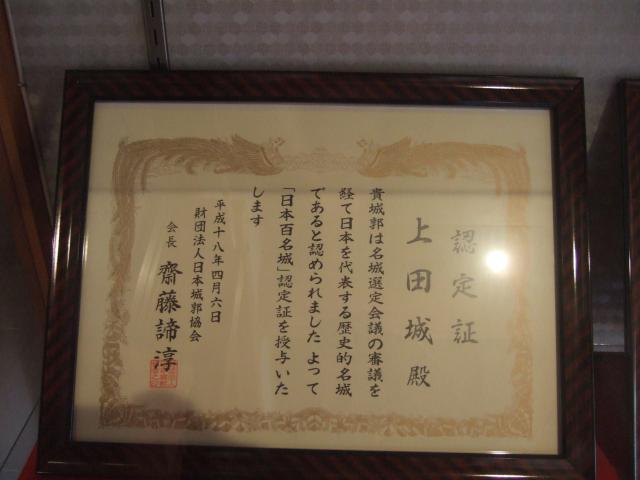 認定証
上田城殿
貴城郭は名城選定会議の審議を
経て日本を代表する歴史的名城
であると認められました よって
「日本百名城」認定証を授与いた
します
平成十八年四月六日
財団法人日本城郭協会
会長 齋藤諦淳